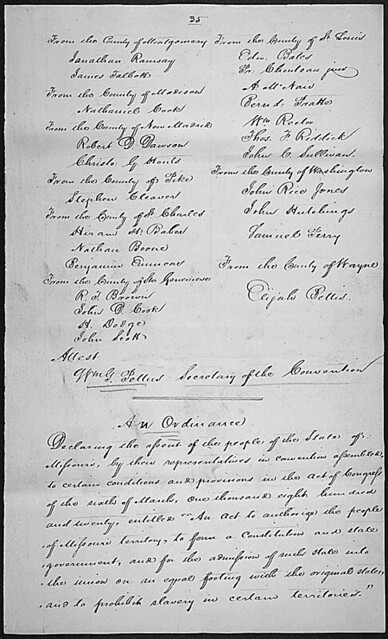 35
From the County of Montgomery
Jonathan Ramsay
James Talbott
From the County of Madison
Nathaniel Cook
From the County of New Madrid
Robert D. Dawson
Christo. G. Houts
From the County of Pike
Stephen Cleaver
From the County of St. Charles
Hiram H. Baber
Nathan Boone
Benjamin Emmons
From the County of Ste. Genevieve
R. T. Brown
John D. Cook
H. Dodge
John Scott
Attest
From the County of St. Louis
Edw. Bates
Pr. Chouteau junr
A. McNair
Bernd. Pratte
Wm Rector
Thos. F. Riddick
John C. Sullivan
From the County of Washington
John Rice Jones
John Hutchings
Samuel Perry
From the County of Wayne
Elijah Bettis
Wm. G. Pettus Secretary of the Convention
An Ordinance
Declaring the assent of the people of the State of
Missouri, by their representatives in convention assembled,
to certain conditions and provisions in the Act of Congress
of the sixth of March, one thousand eight hundred
and twenty, entitled "An Act to authorize the people
of Missouri territory, to form a Constitution and state
government, and for the admission of such state into
the union on an equal footing with the original states,
and to prohibit slavery in certain territories."